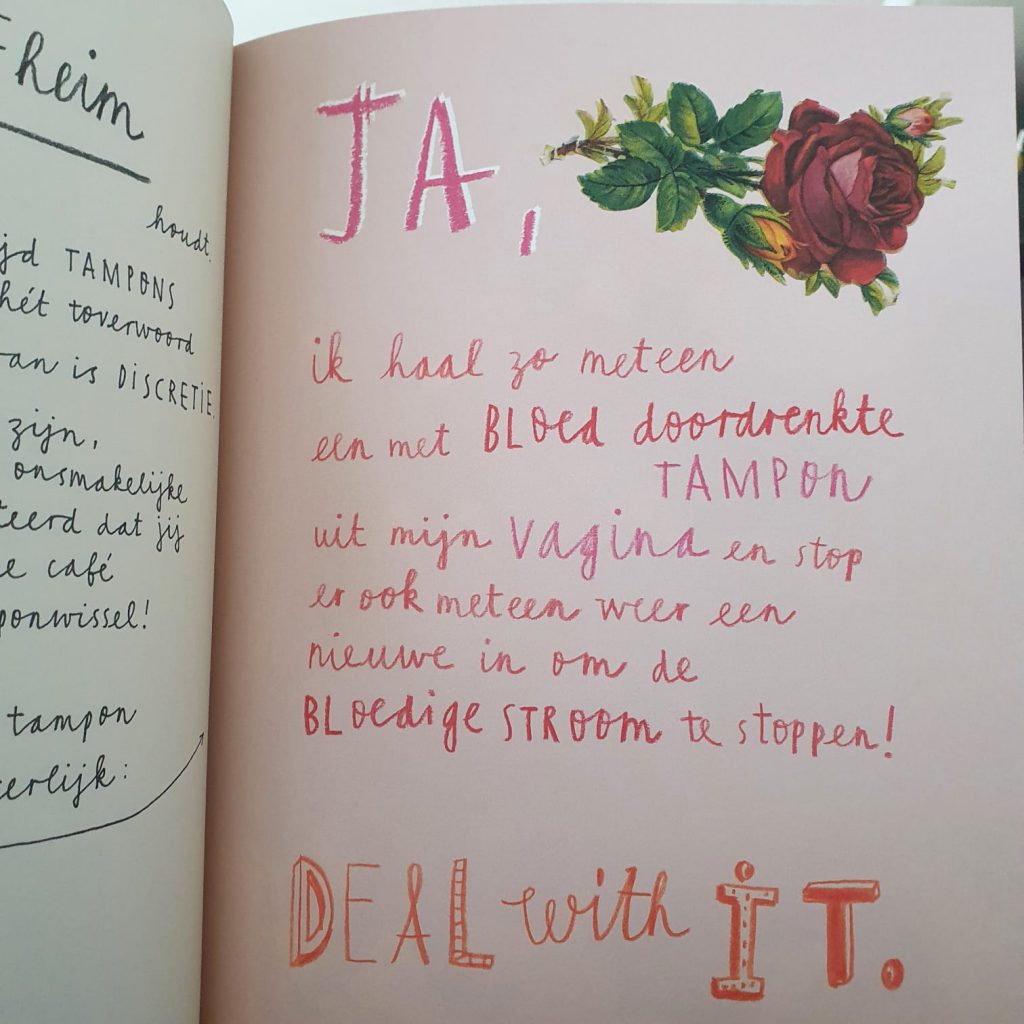 heim
houdt.
TAMPONS
hét toverwoord
is DISCRETIE.
zijn,
onsmakelijke
dat jij
café
tampon
JA,
ik haal zo meteen
een met BLOED doordrenkte
TAMPON
uit mijn VAGINA en stop
er ook meteen weer een
nieuwe in om de
BLOEDIGE STROOM te stoppen!
DEAL with IT.